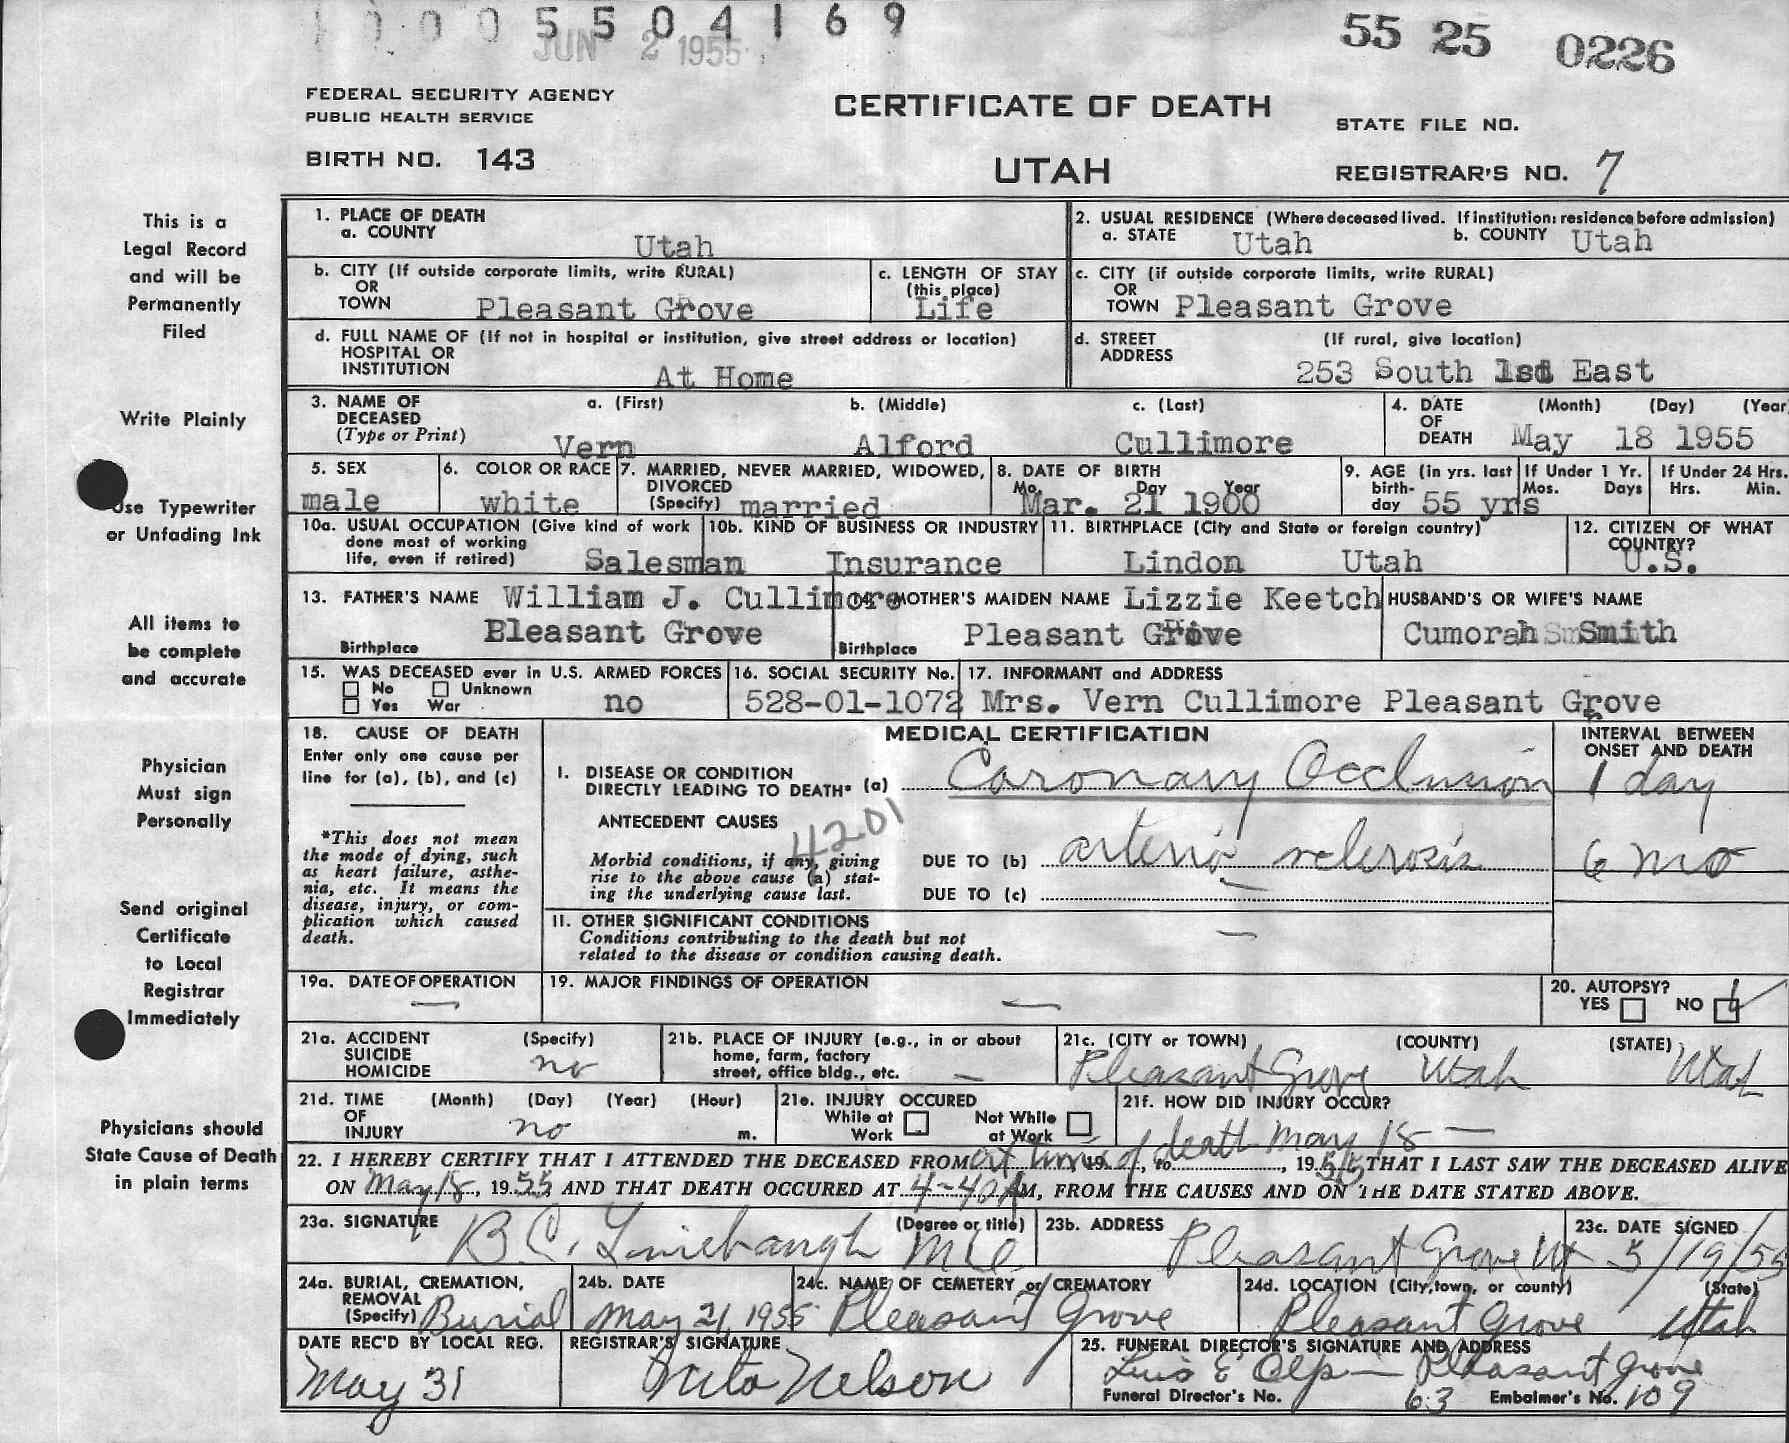 1 0 0 0 5 5 0 4 1 6 9
JUN 2 1955
55 25 0226
FEDERAL SECURITY AGENCY
PUBLIC HEALTH SERVICE
BIRTH NO. 143
CERTIFICATE OF DEATH
UTAH
STATE FILE NO.
REGISTRAR'S NO. 7
This is a
Legal Record
and will be
Permanently
Filed
Write Plainly
Use Typewriter
or Unfading Ink
All items to
be complete
and accurate
Physician
Must sign
Personally
Send original
Certificate
to Local
Registrar
Immediately
Physicians should
State Cause of Death
in plain terms
1. PLACE OF DEATH
a. COUNTY Utah
2. USUAL RESIDENCE (Where deceased lived. If institution: residence before admission)
a. STATE Utah b. COUNTY Utah
b. CITY (If outside corporate limits, write RURAL)
OR
TOWN Pleasant Grove
c. LENGTH OF STAY
(this place)
Life
c. CITY (if outside corporate limits, write RURAL)
OR
TOWN Pleasant Grove
d. FULL NAME OF (If not in hospital or institution, give street address or location)
HOSPITAL OR
INSTITUTION At Home
d. STREET (If rural, give location)
ADDRESS
253 South 1st East
3. NAME OF a. (First) b. (Middle) c. (Last)
DECEASED
(Type or Print) Vern Alford Cullimore
4. DATE (Month) (Day) (Year
OF
DEATH May 18 1955
5. SEX
male
6. COLOR OR RACE
white
7. MARRIED, NEVER MARRIED, WIDOWED,
DIVORCED
(Specify) married
8. DATE OF BIRTH
Mo. Day Year
Mar. 21 1900
9. AGE (in yrs. last
birth-
day 55 yrs
If Under 1 Yr.
Mos. Days
If Under 24 Hrs.
Hrs. Min.
10a. USUAL OCCUPATION (Give kind of work
done most of working
life, even if retired) Salesman
10b. KIND OF BUSINESS OR INDUSTRY
Insurance
11. BIRTHPLACE (City and State or foreign country)
Lindon Utah
12. CITIZEN OF WHAT
COUNTRY?
U.S.
13. FATHER'S NAME William J. Cullimore
Birthplace Bleasant Grove
14. MOTHER'S MAIDEN NAME Lizzie Keetch
Birthplace Pleasant Grove
HUSBAND'S OR WIFE'S NAME
Cumorah Smith
15. WAS DECEASED ever in U.S. ARMED FORCES
No Unknown
Yes War no
16. SOCIAL SECURITY No.
528-01-1072
17. INFORMANT and ADDRESS
Mrs. Vern Cullimore Pleasant Grove
18. CAUSE OF DEATH
Enter only one cause per
line for (a), (b), and (c)
*This does not mean
the mode of dying, such
as heart failure, asthe-
nia, etc. It means the
disease, injury, or com-
plication which caused
death.
MEDICAL CERTIFICATION
INTERVAL BETWEEN
ONSET AND DEATH
I. DISEASE OR CONDITION
DIRECTLY LEADING TO DEATH* (a) Coronary Occlusion 1 day
ANTECEDENT CAUSES
4201
Morbid conditions, if any, giving
rise to the above cause (a) stat-
ing the underlying cause last.
DUE TO (b) arterio sclerosis 6 mo
DUE TO (c) —
II. OTHER SIGNIFICANT CONDITIONS
Conditions contributing to the death but not
related to the disease or condition causing death.
—
19a. DATE OF OPERATION
—
19. MAJOR FINDINGS OF OPERATION
—
20. AUTOPSY?
YES NO
21a. ACCIDENT (Specify)
SUICIDE
HOMICIDE no
21b. PLACE OF INJURY (e.g., in or about
home, farm, factory
street, office bldg., etc. —
21c. (CITY or TOWN) (COUNTY) (STATE)
Pleasant Grove Utah Utah
21d. TIME (Month) (Day) (Year) (Hour)
OF
INJURY no m.
21e. INJURY OCCURED
While at Work
Not While at Work
21f. HOW DID INJURY OCCUR?
—
22. I HEREBY CERTIFY THAT I ATTENDED THE DECEASED FROM at time 19 of, to death May 18, 1955 THAT I LAST SAW THE DECEASED ALIVE
ON May 18, 1955 AND THAT DEATH OCCURED AT 4-40 AM, FROM THE CAUSES AND ON THE DATE STATED ABOVE.
23a. SIGNATURE (Degree or title)
B.C. Linebaugh MD
23b. ADDRESS
Pleasant Grove Ut
23c. DATE SIGNED
5/19/55
24a. BURIAL, CREMATION,
REMOVAL
(Specify) Burial
24b. DATE
May 21, 1955
24c. NAME OF CEMETERY or CREMATORY
Pleasant Grove
24d. LOCATION (City, town, or county) (State)
Pleasant Grove Utah
DATE REC'D BY LOCAL REG.
May 31
REGISTRAR'S SIGNATURE
Nelson
25. FUNERAL DIRECTOR'S SIGNATURE AND ADDRESS
E Olp — Pleasant Grove
Funeral Director's No. 63 Embalmer's No. 109